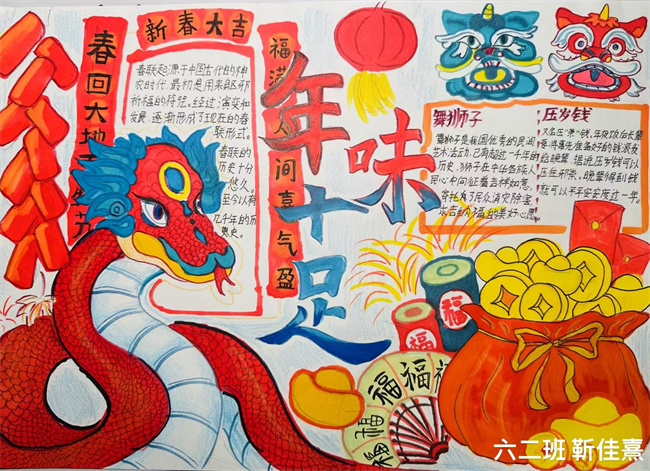 新春大吉
春回大地
福满人间喜气盈
年味十足
春联起源于中国古代的神
农时代,最初是用来驱邪
祈福的符箓。经过演变和
发展,逐渐形成了现在的春
联形式。
春联的
历史十分
悠久。
至今以有
几千年的历
史。
舞狮子
舞狮子是我国优秀的民间
艺术活动,已有超过一千年的
历史,狮子在中华各族人
民心中征着吉祥如意。
寄托着了民众消灾除害、
求吉纳福的美好心愿。
压岁钱
又名压"祟"钱,年晚饭后长辈
要将事先准备好的钱派发
给晚辈,据说压岁钱可以
压住邪祟,晚辈得到钱
就可以平平安安度过一年。
福
福
福
福
福
福
六二班 靳佳熹